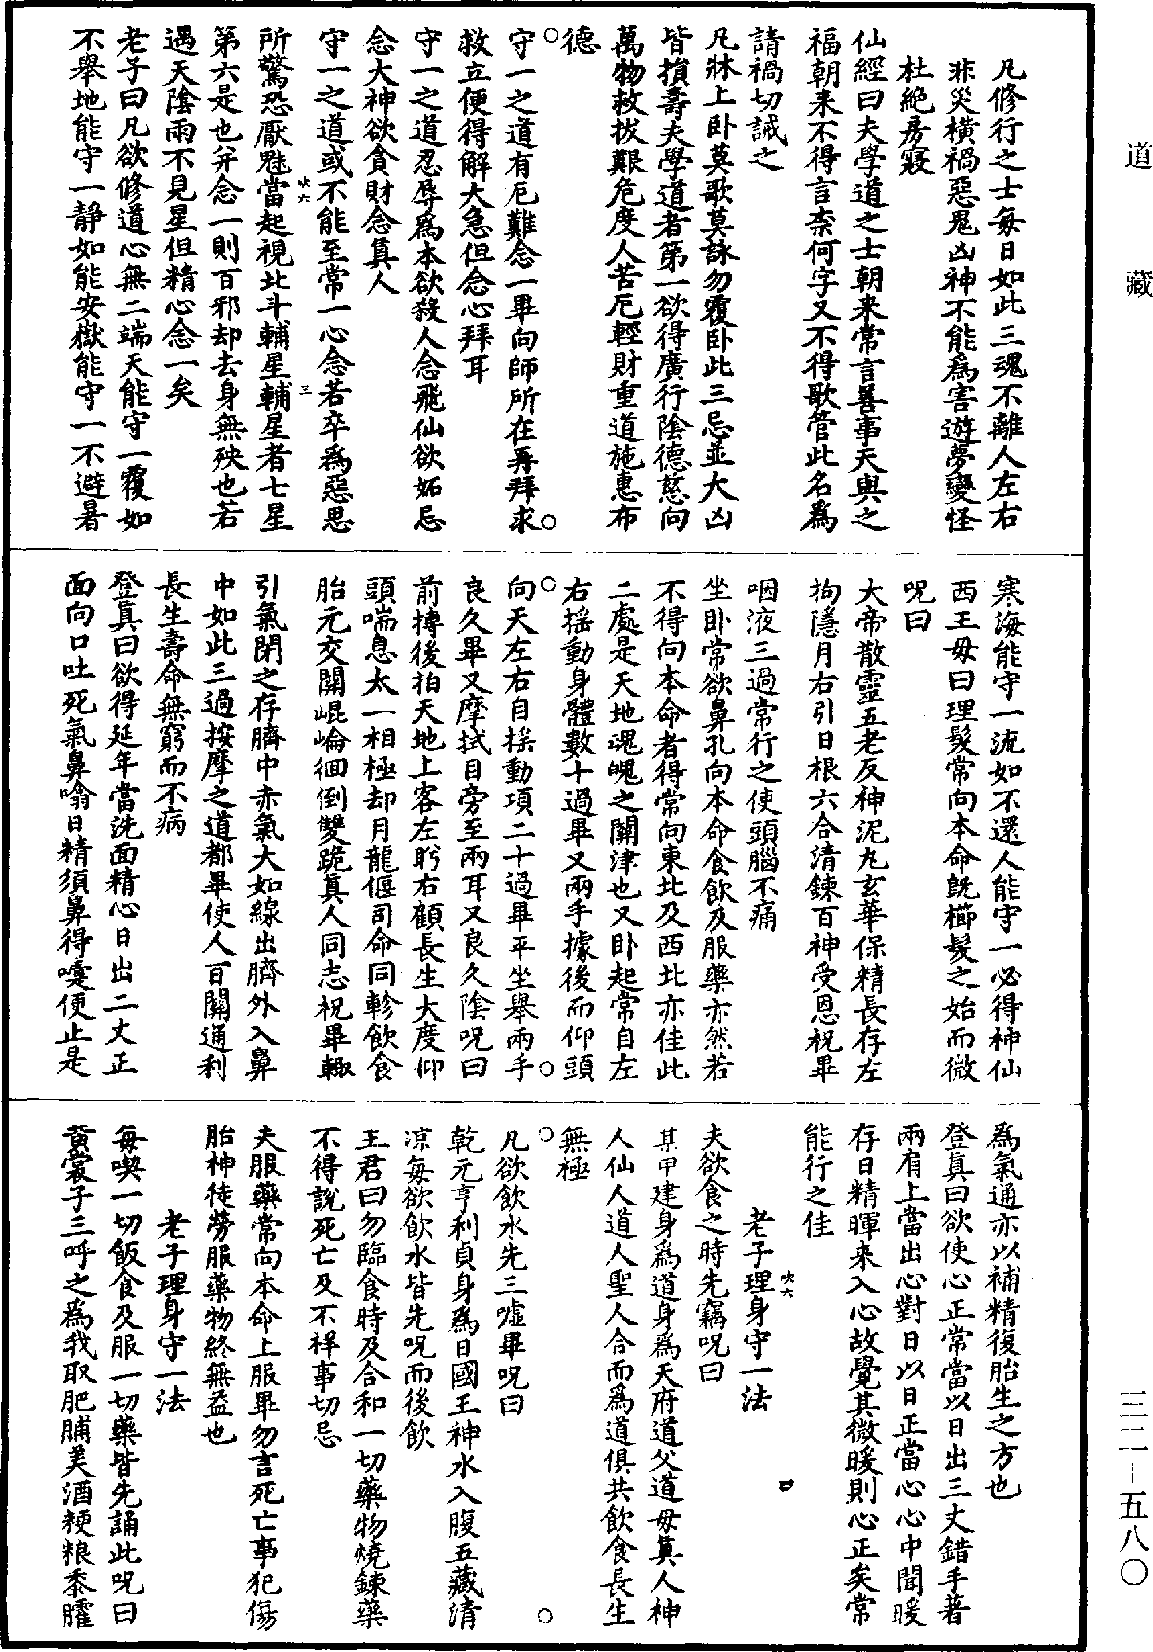 道藏
凡修行之士每日如此三魂不離人左右
非災橫禍惡鬼凶神不能爲害遊夢變怪
杜絶房寢
仙經曰夫學道之士朝来常言善事天與之
福朝来不得言奈何字又不得歌管此名爲
請禍切誡之
凡牀上卧莫歌莫詠勿覆卧此三忌並大凶
皆損壽夫學道者第一欲得廣行陰德慈向
萬物救拔艱危度人苦厄輕財重道施惠布
德
守一之道有厄難念一畢向師所在再拜求
救立便得解大急但念心拜耳
守一之道忍辱爲本欲殺人念飛仙欲妬忌
念大神欲貪財念真人
守一之道或不能至常一心念若卒爲惡思
所驚恐厭魅當起視北斗輔星輔星者七星
第六是也并念一則百邪却去身無殃也若
遇天陰雨不見星但精心念一矣
老子曰凡欲修道心無二端天能守一覆如
不舉地能守一靜如能安嶽能守一不避暑
夾六
三
寒海能守一流如不還人能守一必得神仙
西王母曰理髮常向本命既櫛髮之始而微
呪曰
大帝散靈五老反神泥丸玄華保精長存左
拘隱月右引日根六合清鍊百神受恩祝畢
咽液三過常行之使頭腦不痛
坐卧常欲鼻孔向本命食飲及服藥亦然若
不得向本命者得常向東北及西北亦佳此
二處是天地魂魄之關津也又卧起常自左
右摇動身體數十過畢又兩手據後而仰頭
向天左右自挨動項二十過畢平坐舉兩手
良久畢又摩拭目旁至兩耳又良久陰呪曰
前摶後拍天地上客左眄右顧長生大度仰
頭喘息太一相極却月龍偃司命同軫飲食
胎元交關崐崘徊倒雙跪真人同志祝畢輙
引氣閉之存臍中赤氣大如線出臍外入鼻
中如此三過按摩之道都畢使人百關通利
長生壽命無窮而不病
登真曰欲得延年當洗面精心日出二丈正
面向口吐死氣鼻噏日精須鼻得嚏便止是
爲氣通亦以補精復胎生之方也
登真曰欲使心正常當以日出三丈錯手著
兩肩上當出心對日以日正當心心中聞暖
存日精暉来入心故覺其微暖則心正矣常
能行之佳
老子理身守一法
夾六
四
夫欲食之時先竊呪曰
某甲建身爲道身爲天府道父道母真人神
人仙人道人聖人合而爲道俱共飲食長生
無極
凡欲飲水先三噓畢呪曰
乾元亨利貞身爲日國王神水入腹五藏清
凉每欲飲水皆先呪而後飲
王君曰勿臨食時及合和一切藥物燒鍊藥
不得説死亡及不祥事切忌
夫服藥常向本命上服畢勿言死亡事犯傷
胎神徒勞服藥物終無益也
老子理身守一法
每喫一切飯食及服一切藥皆先誦此呪曰
黄裳子三呼之爲我取肥脯美酒粳粮黍臛
三二－五八〇